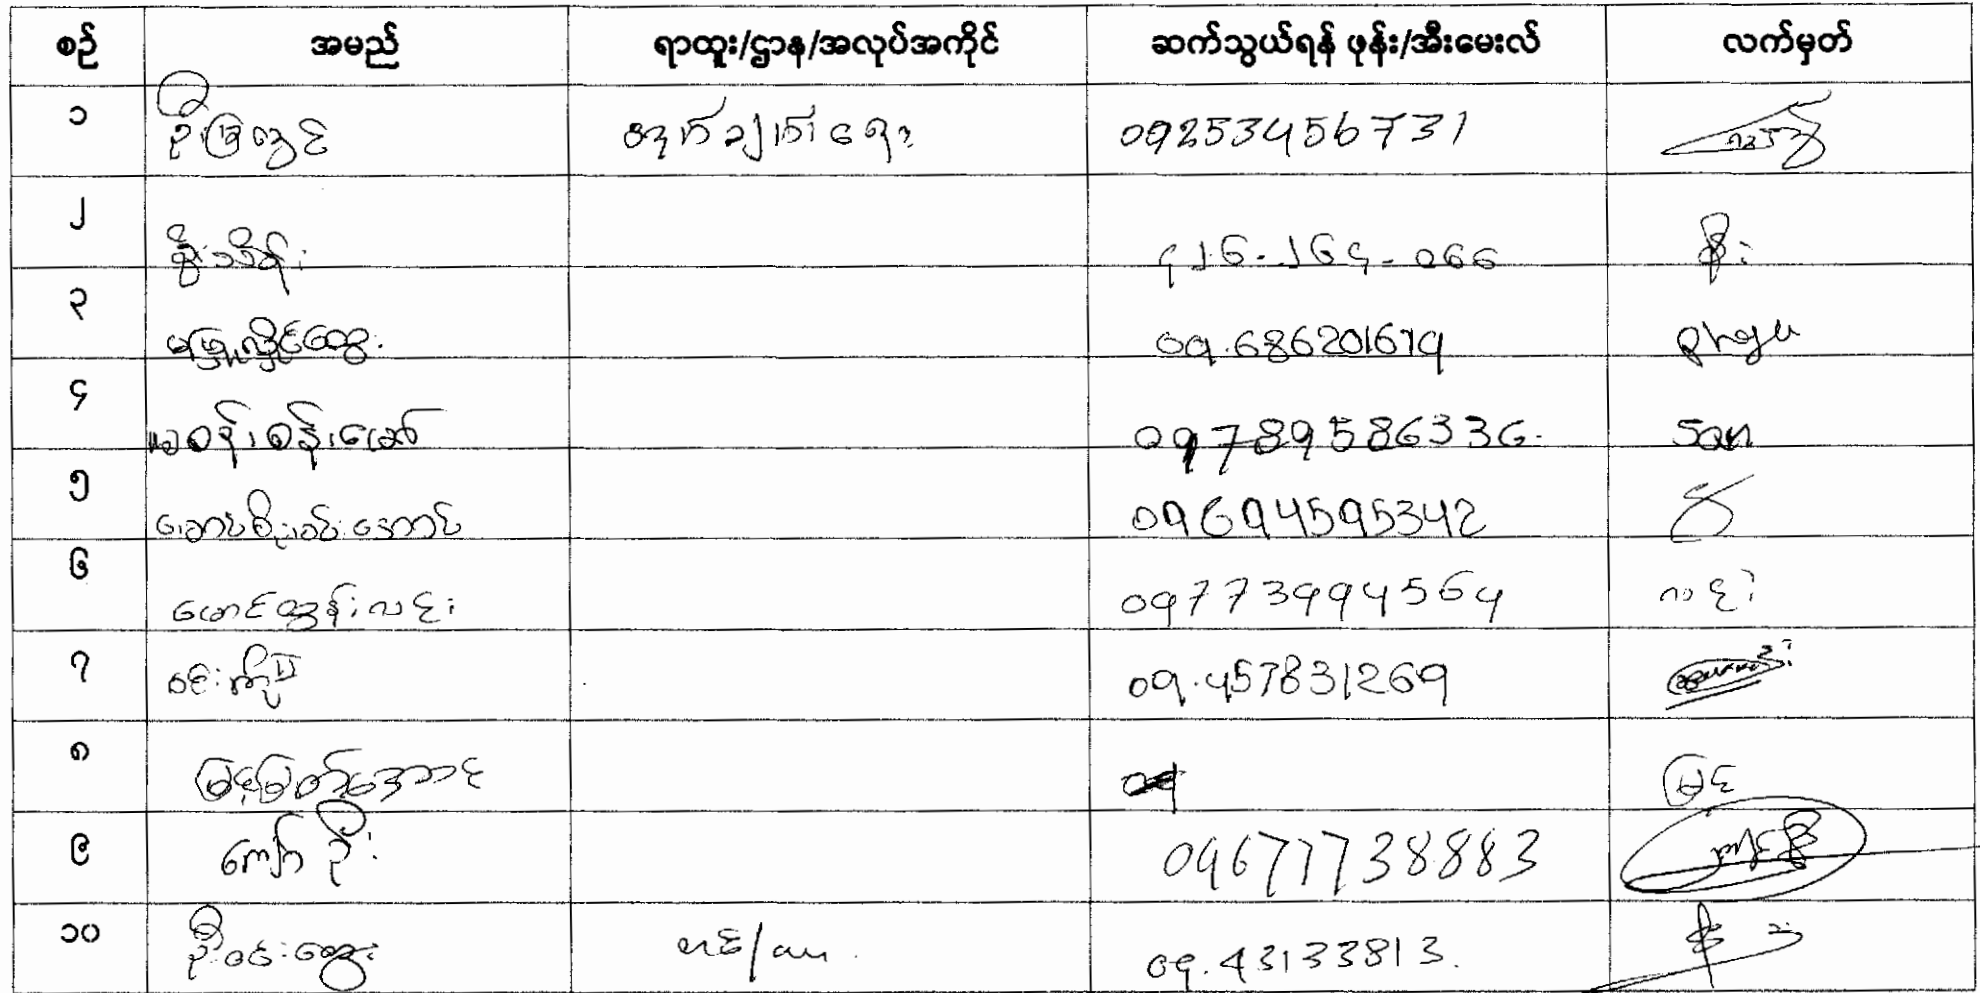 စဉ် အမည် ရာထူး/ဌာန/အလုပ်အကိုင် ဆက်သွယ်ရန် ဖုန်း/အီးမေးလ် လက်မှတ်
၁ ဦးမြလွင် အုတ်ချပ်ရေး 09253456731
၂ စိုးသိန်း ၄၂၆-၂၆၄-၀၆၆ စိုး
၃ မဖြူလှိုင်ထွေး 09.686201679 phyu
၄ မစန်းစန်းဆော် 09789586336. San
၅ 09694595342
၆ မောင်ထွန်းလင်း 09773994564 လင်း
၇ ဝင်းကိုကို 09.457831269
၈ မြင့်မြတ်အောင် 09 မြင့်
၉ ကျော်ဦး 09677738883
၁၀ ဦးဝင်းထွေး ရင်/ဆယ 09.43133813.